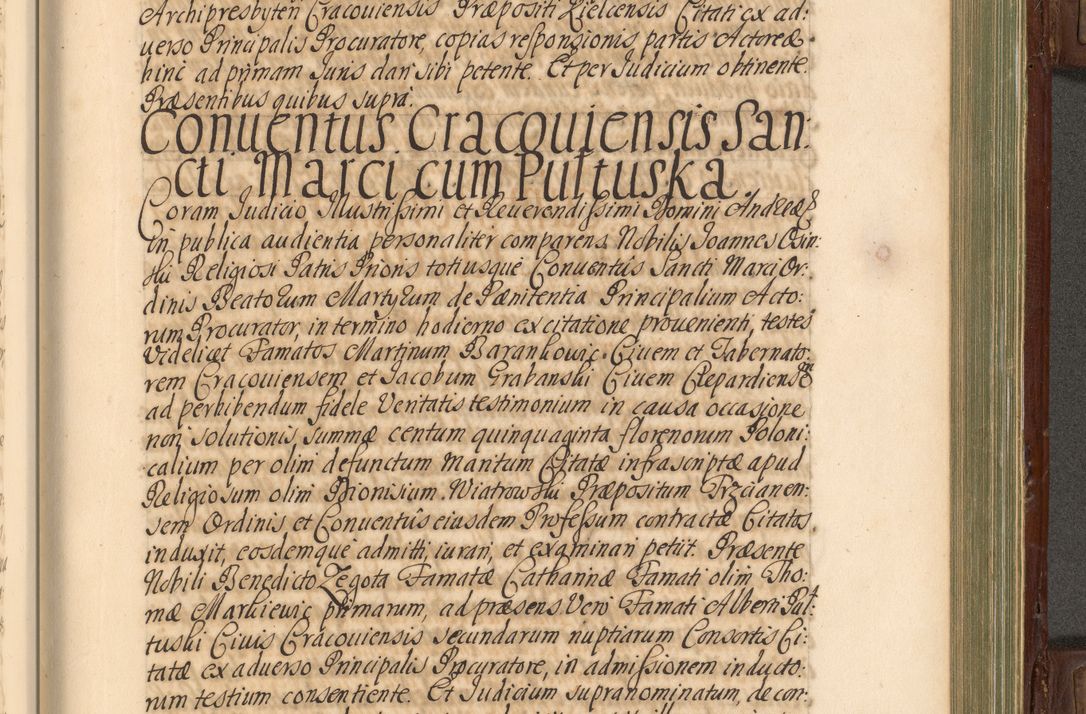 Archipresbyteri Cracouiensis Præpositi Kielcensis Citati ex ad:
uerso Principalis Procuratore, copias responsionis partis Actoreæ
hinc ad primam Juris dari sibi petente. Et per Judicium obtinente.
Præsentibus quibus supra.
Conuentus Cracouiensis San:
cti Marci cum Pułtuska.
Coram Judicio Jllustrissimi et Reuerendissimi Domini Andreæ
in publica audientia personaliter comparens Nobilis Joannes Osin:
ski Religiosi Patris Prioris totiusque Conuentus Sancti Marci Or:
dinis Beatorum Martyrum de Pænitentia Principalium Acto:
rum Procurator, in termino hodierno ex citatione prouenienti, testes
Videlicet Famatos Martinum Barankowic Ciuem et Tabernato:
rem Cracouiensem et Jacobum Grabanski Ciuem Clepardiensem
ad perhibendum fidele Veritatis testimonium in causa occasione
non solutionis summæ centum quinquaginta florenorum Poloni:
calium per olim defunctum Maritum Citatæ infrascriptæ apud
Religiosum olim Dionisium Wiatrowski Præpositum Trzcianen:
sem Ordinis et Conuentus eiusdem Professum contractæ Citatos
induxit, eosdemque admitti, iurari, et examinari petiit. Præsente
Nobili Benedicto Zegota Famatæ Catharinæ Famati olim Tho:
mæ Markiewic primarum, ad præsens Vero Famati Alberti Puł:
tuski Ciuis Cracouiensis secundarum nuptiarum Consortis Ci:
tatæ ex aduerso Principalis Procuratore, in admissionem inducto:
rum testium consentiente. Et Judicium supranominatum, de con: